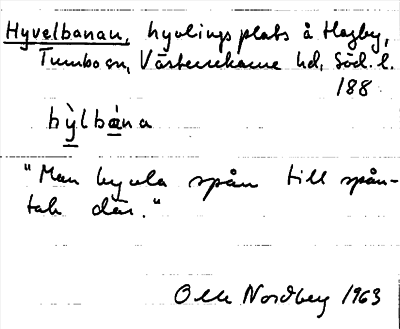 Hyvelbanan, hyvlingsplats å Hagby,
Tumbo sn, Västerrekarne hd, Söd. l.
188
bỳlbána
"Man hyvla spån till spån-
tak där."
Olle Nordberg 1963